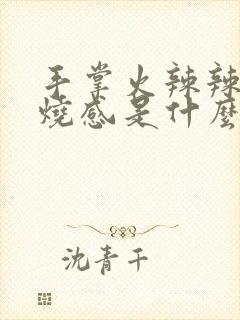 手掌火辣辣
燒感是什麼
沈青千